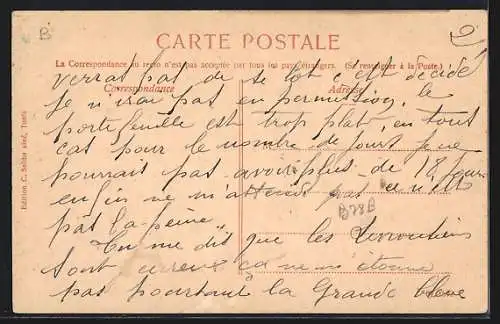 B
CARTE POSTALE
La Correspondance au recto n'est pas acceptée par tous les pays étrangers. (Se renseigner à la Poste.)
Correspondance
Adresse
verras pas de se tot c est décidé
Je n'irai pas en permission, le
porte feuille est trop plat, en tout
cas pour le nombre de jours je ne
pourrais pas avoir plus de 12 jours
enfin ne m'attends pas ce n'est
pas la peine
B28B
Tu me dis que les
sont ça ne m'étonne
pas pourtant la Grande bleue